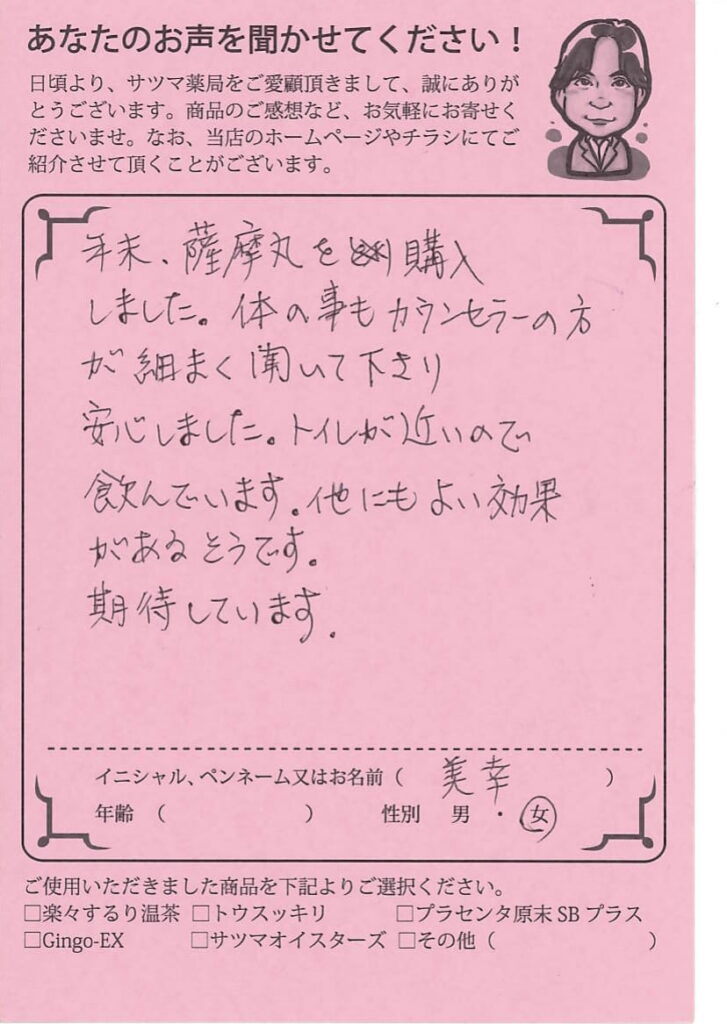 あなたのお声を聞かせてください！
日頃より、サツマ薬局をご愛顧頂きまして、誠にありが
とうございます。商品のご感想など、お気軽にお寄せく
ださいませ。なお、当店のホームページやチラシにてご
紹介させて頂くことがございます。
年末、薩摩丸を購入
しました。体の事もカウンセラーの方
が細まく聞いて下さり
安心しました。トイレが近いので
飲んでいます。他にもよい効果
があるそうです。
期待しています。
イニシャル、ペンネーム又はお名前（ 美幸 ）
年齢 （ ） 性別 男 ・ 女
ご使用いただきました商品を下記よりご選択ください。
□楽々するり温茶 □トウスッキリ □プラセンタ原末 SB プラス
□Gingo-EX □サツマオイスターズ □その他（ ）